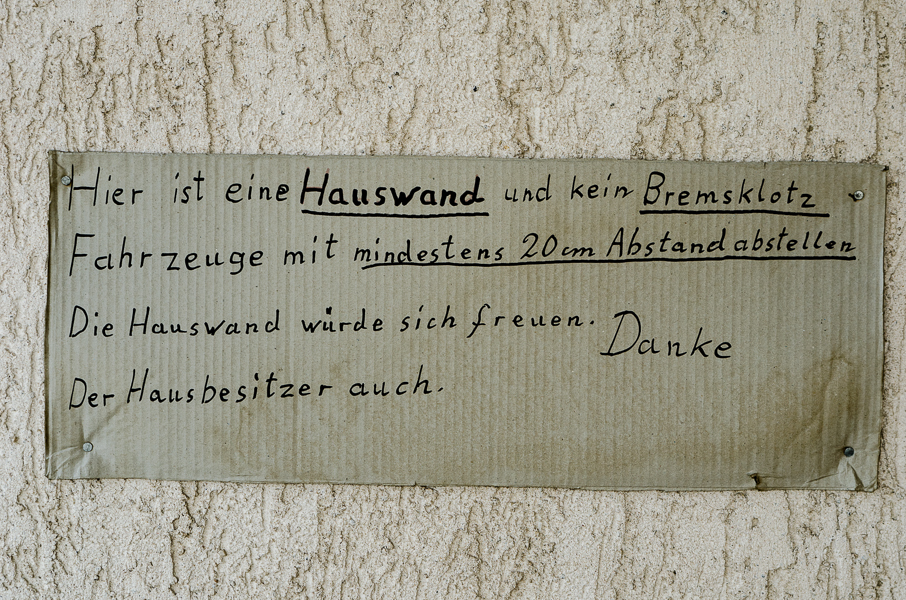 Hier ist eine Hauswand und kein Bremsklotz
Fahrzeuge mit mindestens 20cm Abstand abstellen
Die Hauswand würde sich freuen.
Danke
Der Hausbesitzer auch.